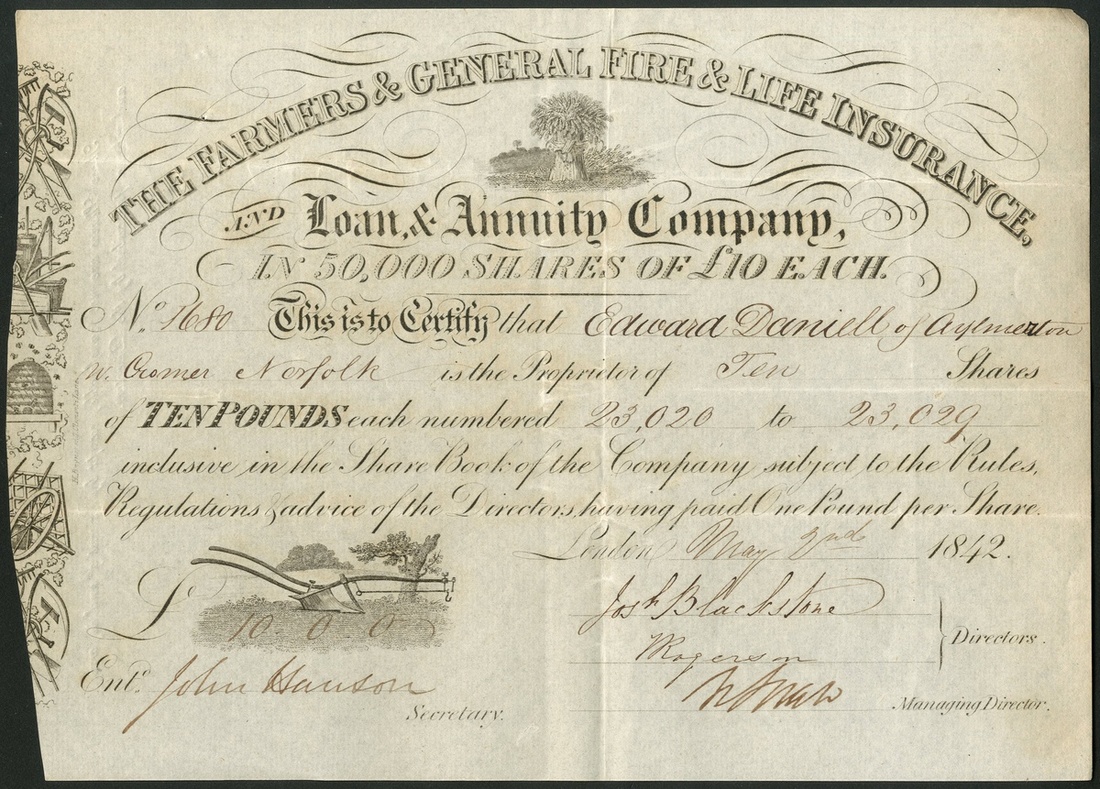 THE FARMERS & GENERAL FIRE & LIFE INSURANCE,
AND Loan, & Annuity Company,
IN 50,000 SHARES OF £10 EACH.
No. 1680 This is to Certify that Edward Daniell of Aylmerton
nr. Cromer Norfolk is the Proprietor of Ten Shares
of TEN POUNDS each numbered 23,020 to 23,029
inclusive in the Share Book of the Company subject to the Rules,
Regulations & advice of the Directors, having paid One Pound per Share.
London May 2nd 1842.
£ 10 0 0
Josh Blackstone
Rogerson
Directors.
Entd. John Hanson
Secretary.
Managing Director.